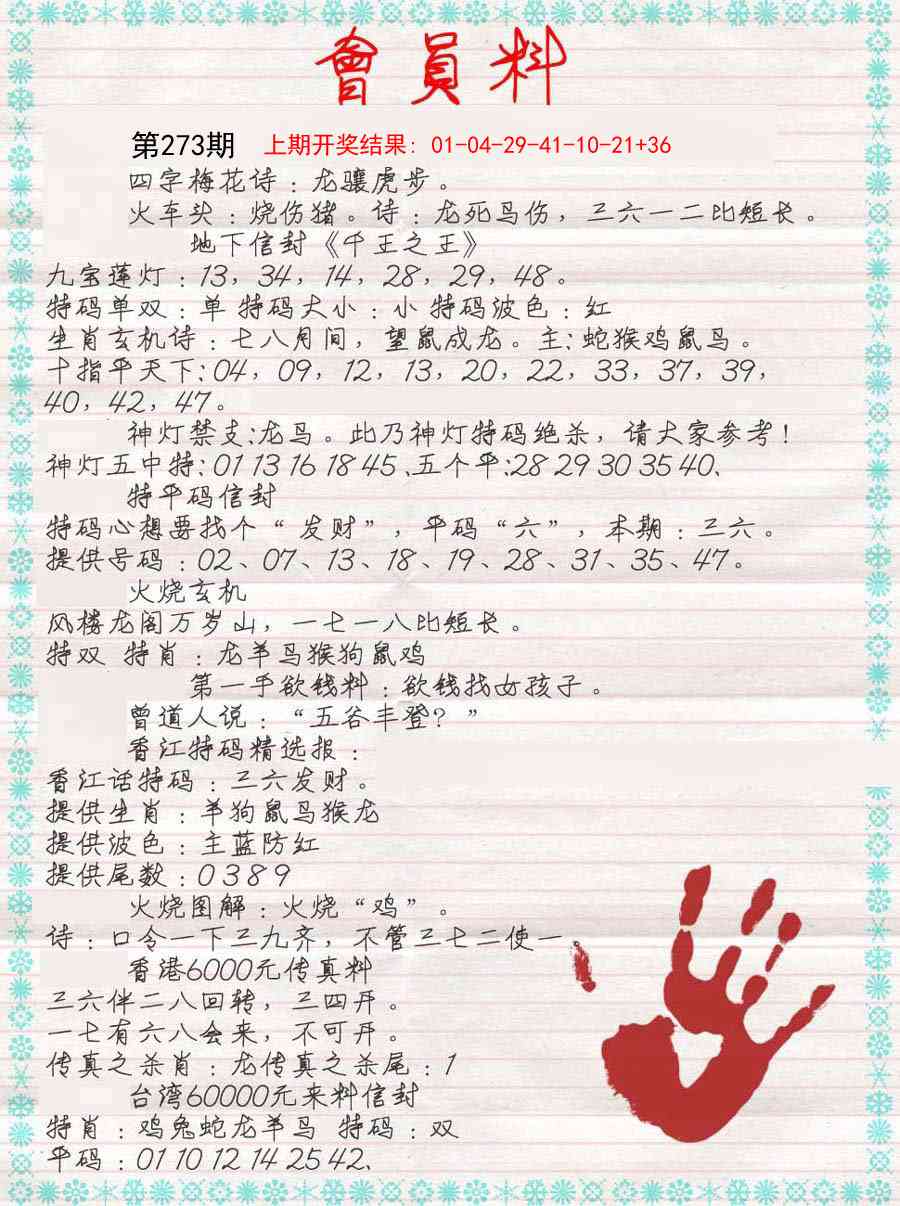 會員料
第273期 上期开奖结果: 01-04-29-41-10-21+36
四字梅花诗：龙骧虎步。
火车头：烧伤猪。诗：龙死马伤，三六一二比短长。
地下信封《千王之王》
九宝莲灯：13，34，14，28，29，48。
特码单双：单 特码大小：小 特码波色：红
生肖玄机诗：七八月间，望鼠成龙。主: 蛇猴鸡鼠马。
十指平天下: 04，09，12，13，20，22，33，37，39，
40，42，47。
神灯禁支:龙马。此乃神灯特码绝杀，请大家参考！
神灯五中特: 01 13 16 18 45、五个平:28 29 30 35 40、
特平码信封
特码心想要找个“发财”，平码“六”，本期：三六。
提供号码：02、07、13、18、19、28、31、35、47。
火烧玄机
风楼龙阁万岁山，一七一八比短长。
特双 特肖：龙羊马猴狗鼠鸡
第一手欲钱料：欲钱找女孩子。
曾道人说：“五谷丰登？”
香江特码精选报：
香江话特码：三六发财。
提供生肖：羊狗鼠马猴龙
提供波色：主蓝防红
提供尾数：0 3 8 9
火烧图解：火烧“鸡”。
诗：口令一下三九齐，不管三七二使一。
香港6000元传真料
三六伴二八回转，三四开。
一七有六八会来，不可开。
传真之杀肖：龙传真之杀尾：1
台湾60000元来料信封
特肖：鸡兔蛇龙羊马 特码：双
平码：01 10 12 14 25 42、